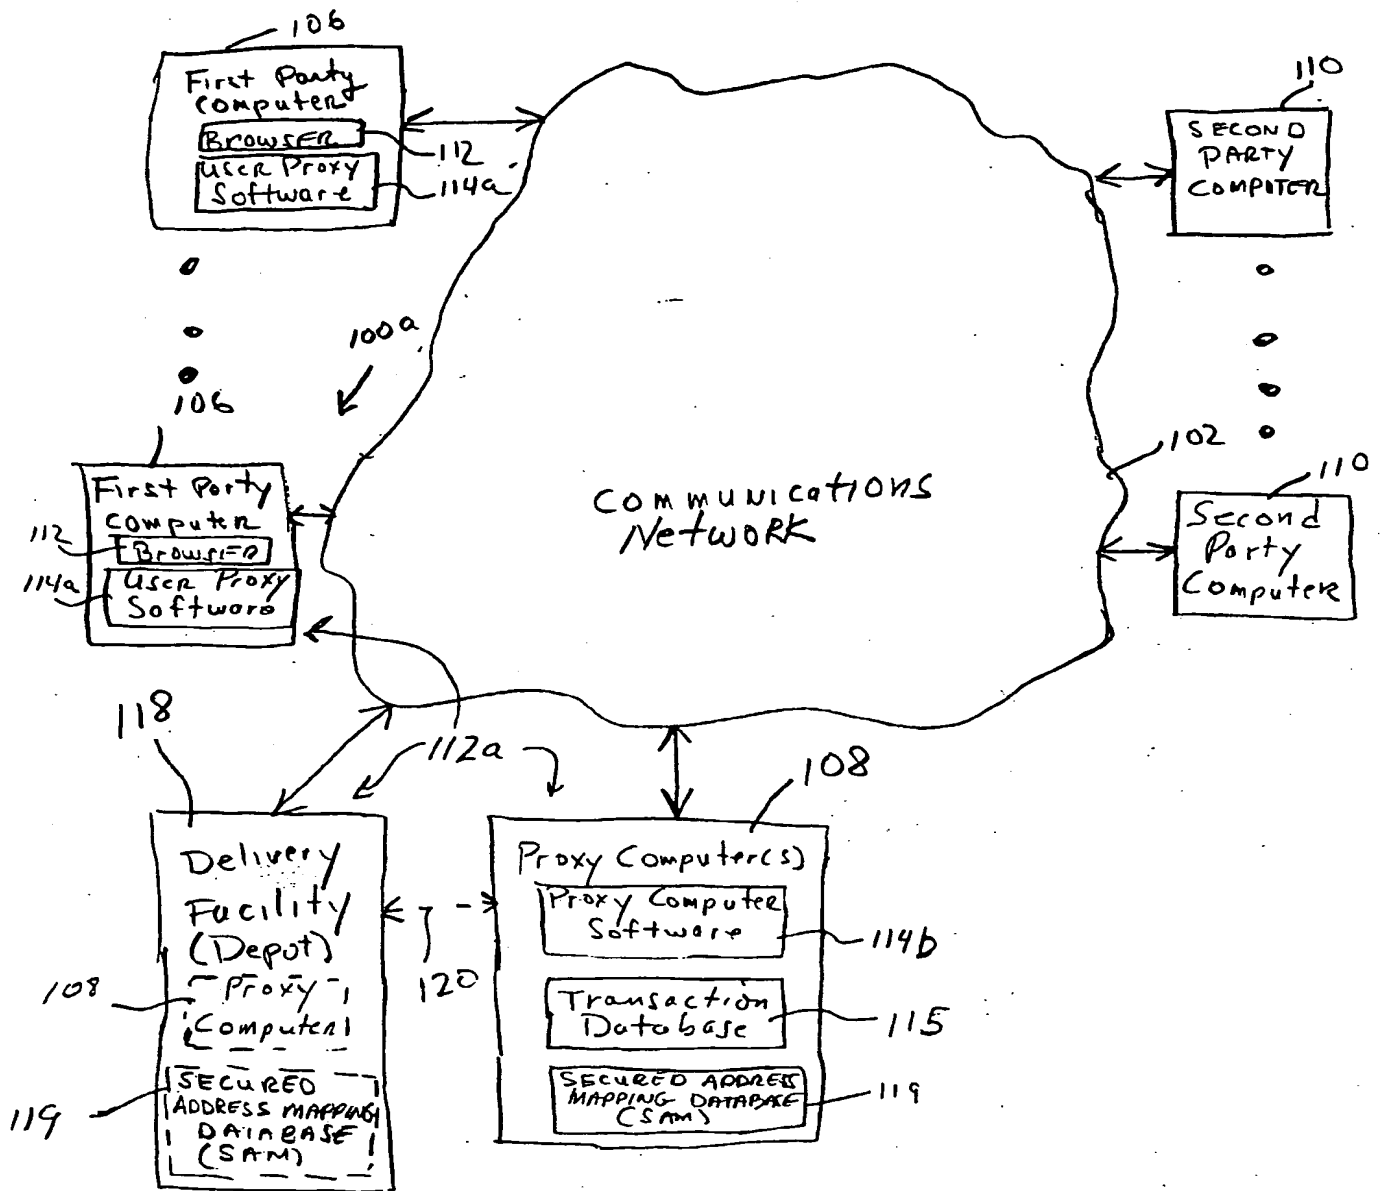 106
First Party
Computer
BROWSER
112
User Proxy
Software
114a
110
SECOND
PARTY
COMPUTER
100a
106
First Party
Computer
112
BROWSER
114a
User Proxy
Software
Communications
Network
102
110
Second
Party
Computer
118
112a
108
Delivery
Facility
(Depot)
108
Proxy
Computer
119
SECURED
ADDRESS MAPPING
DATABASE
(SAM)
120
Proxy Computer(s)
Proxy Computer
Software
114b
Transaction
Database
115
SECURED ADDRESS
MAPPING DATABASE
(SAM)
119